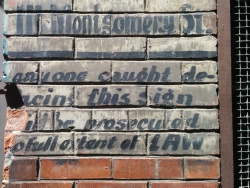 Montgomery St
anyone caught de-
acing this sign
ll be prosecuted
o full extent of LAW